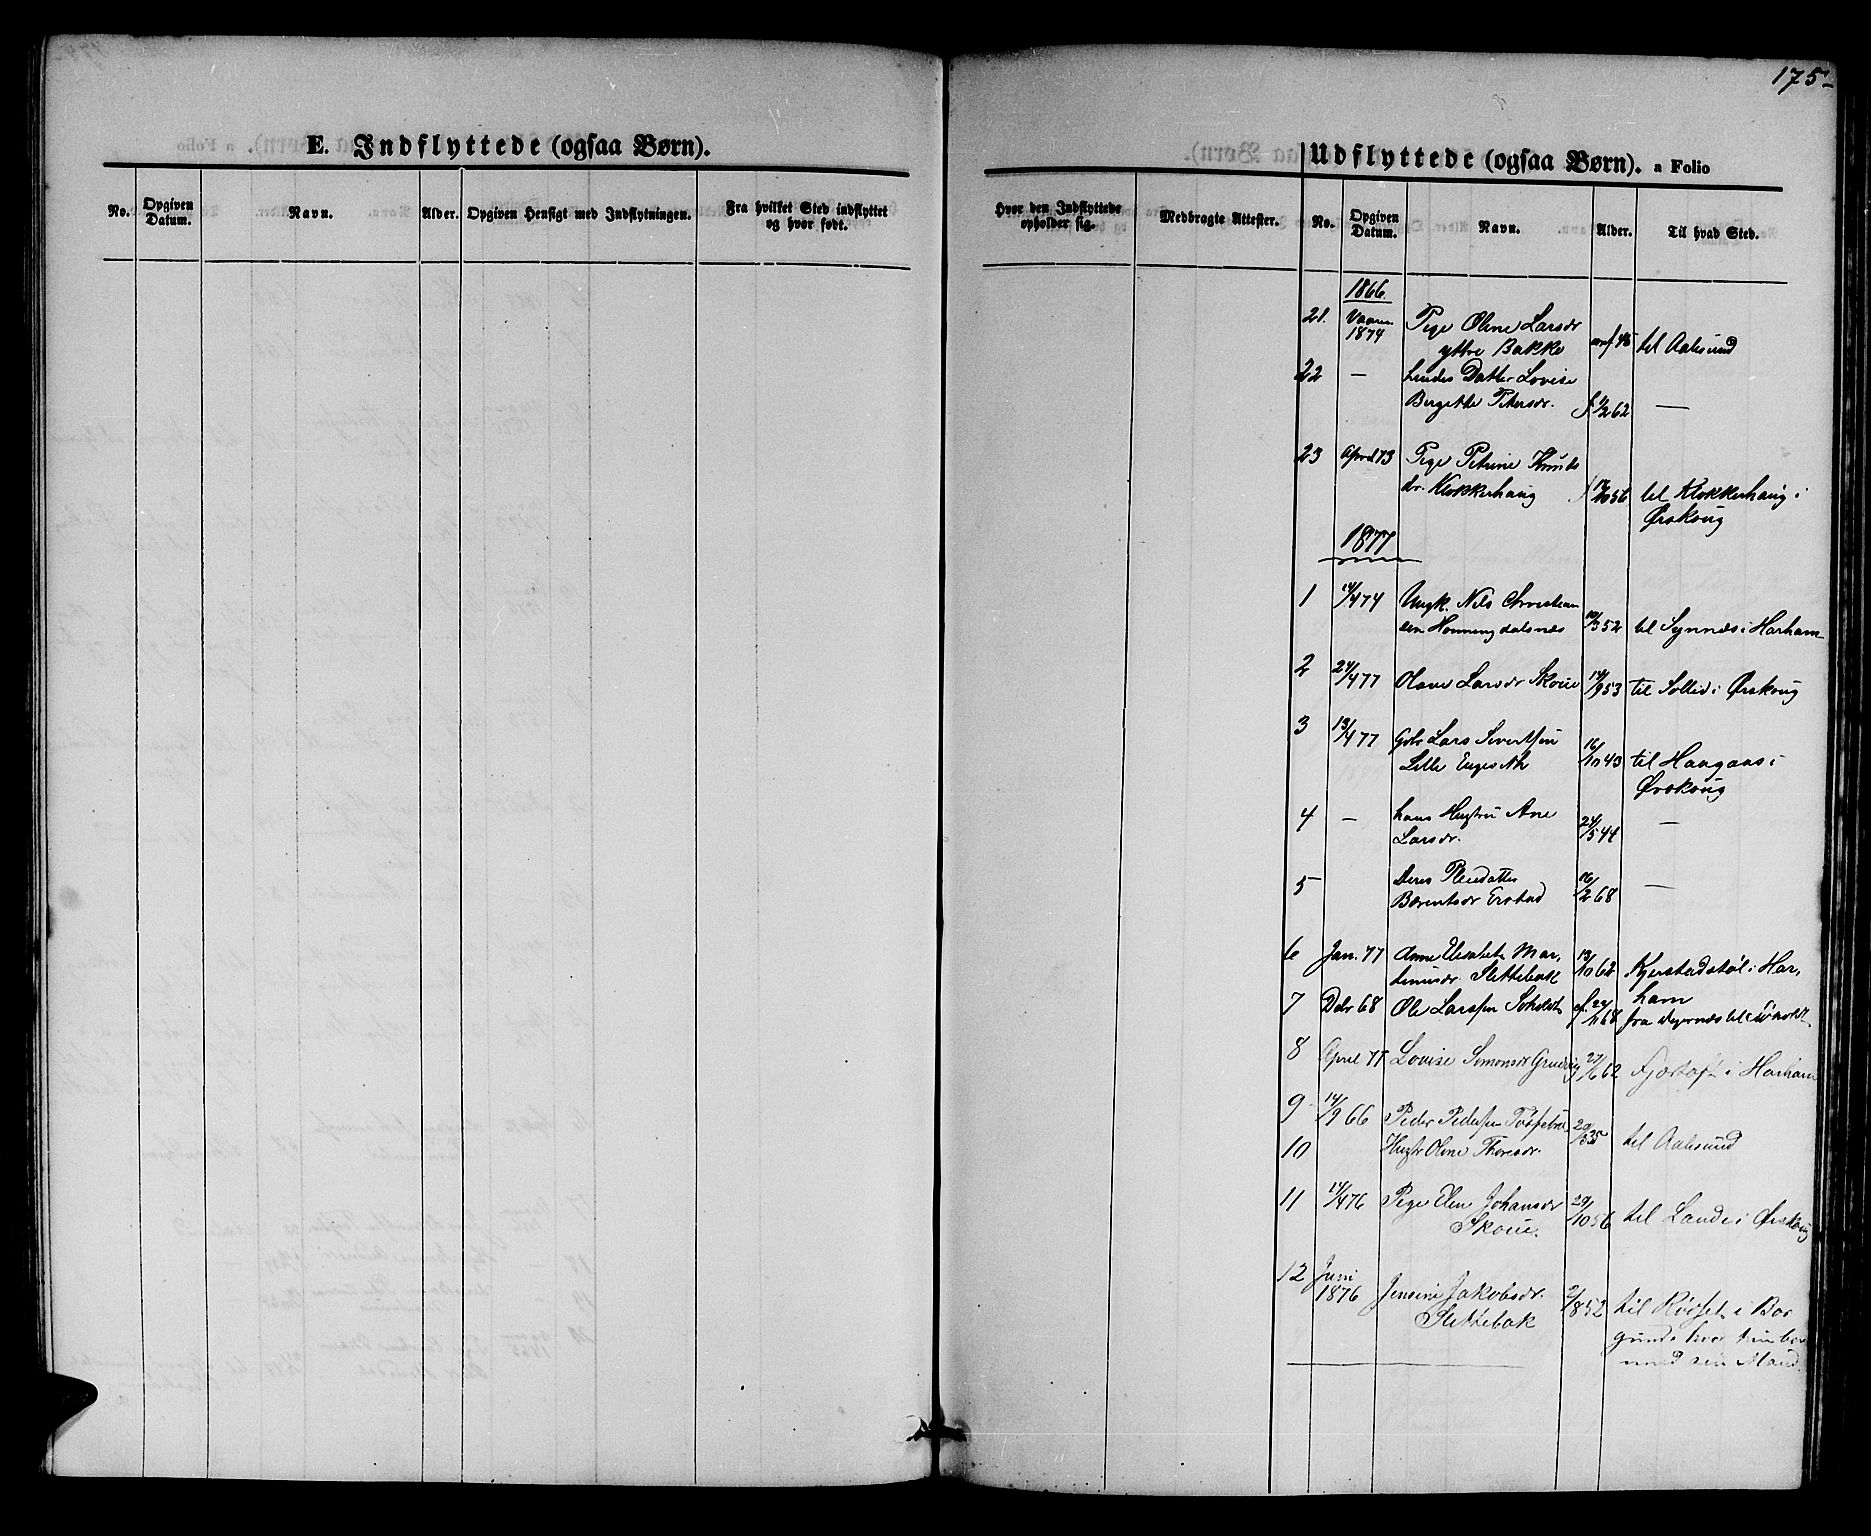 175
E. Indflyttede (ogsaa Børn).
No.
Opgiven Datum.
Navn.
Alder.
Opgiven Hensigt med Indflytningen.
Fra hvilket Sted indflyttet og hvor født.
Hvor den Indflyttede opholder sig.
Medbragte Attester.
Udflyttede (ogsaa Børn). a Folio
No.
Opgiven Datum.
Navn.
Alder.
Til hvad Sted.
1866.
21. Vaaren 1874 Pige Oline Larsdr
yttre Bakke 46 til Aalesund
22 — hendes Datter Lovise
Bergitte Petersdr. f 62 —
23 April 73 Pige Petrine Knuds
dr. Klokkerhaug 12/10 56 til Klokkerhaug i
Ørskoug
1877
1 14/4 74 Ungk. Nils Christian
sen Honningdalsnæs 10/3 52 til Synnæs i Harham
2 24/4 77 Olave Larsdr Skoue 14/9 53 til Sollid i Ørskoug
3 13/4 77 Gbr Lars Sivertsen
Lille Engeseth 16/10 43 til Haagaas i
Ørskoug
4 — hans Hustru Ane
Larsdr. 24/5 44 —
5 Deres Pleiedatter
Bærentsdr Erstad 16/2 68 —
6 Jan. 77 Anne Elisabet Mar,
tinusdr Slettebak 13/10 62 Kjerstadstøl i Har,
ham
7 Dcbr 68 Ole Larssen Soholdt 68 fra til Soholdt
8 April 77 Lovise Simonsdr 27/6 62 Fjørtoft i Harham
9 14/9 66 Peder Pedersen 29/3 35 til Aalesund
10 Hustr Oline Thoresdr.
11 14/4 76 Pige Elen Johansdr
Skoue. 29/10 56 til Lande i Ørskoug
12 Juni 1876 Jensine Jakobsdr.
Slettebak 2/8 52 til Røvset i Bor
gund, hvor hun bor
med sin Mand.